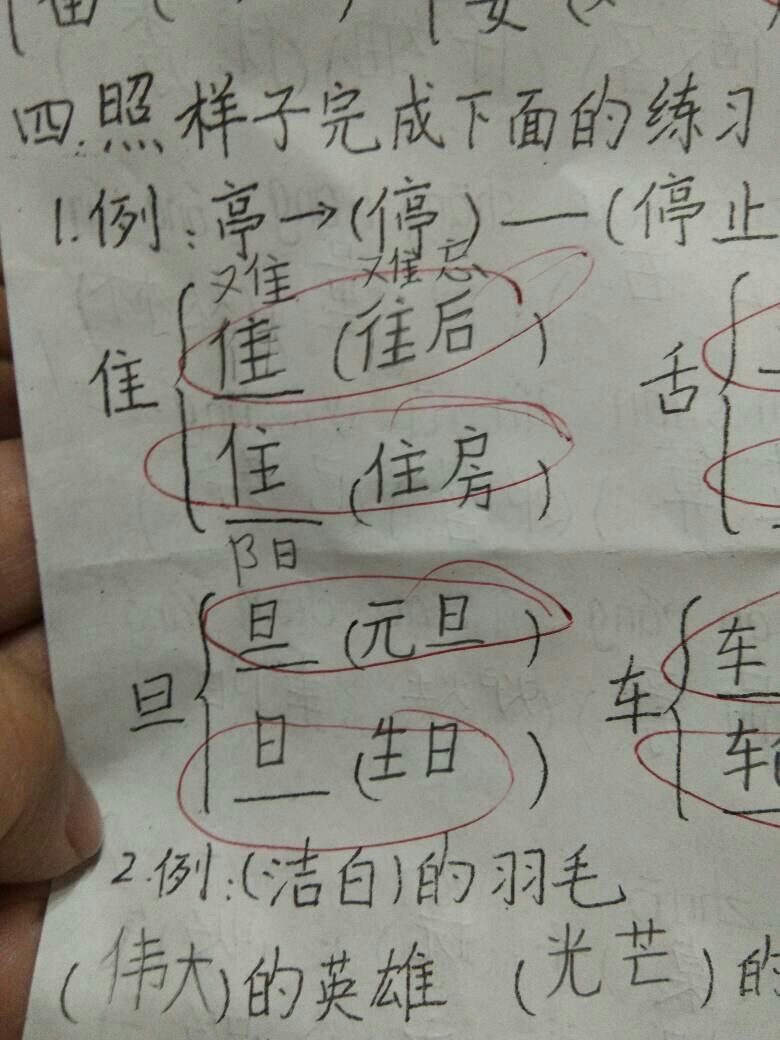 四.照样子完成下面的练习
1.例:亭→(停)—(停止
难 难忘
隹 (往后)
隹 舌
住 (住房)
阳
旦 (元旦) 车
旦 车
日 (生日)
2.例:(洁白)的羽毛
(伟大)的英雄 (光芒)的